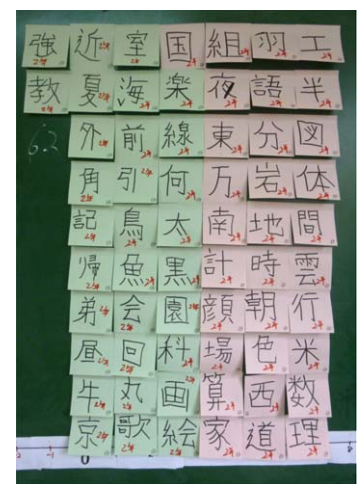 強 近 室 国 組 羽 工
教 夏 海 楽 夜 語 半
外 前 線 東 分 図
角 引 何 万 岩 体
記 鳥 太 南 地 間
帰 魚 黒 計 時 雲
弟 会 園 顔 朝 行
昼 回 科 場 色 米
牛 丸 画 算 西 数
京 歌 絵 家 道 理
62